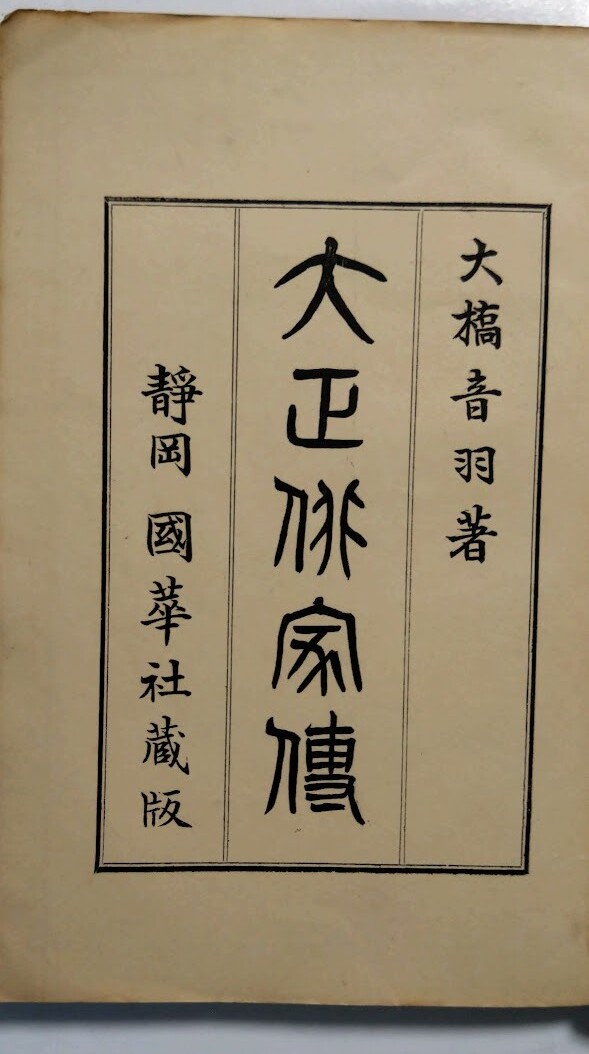 大橋音羽著
大正俳家傳
靜岡 國華社蔵版